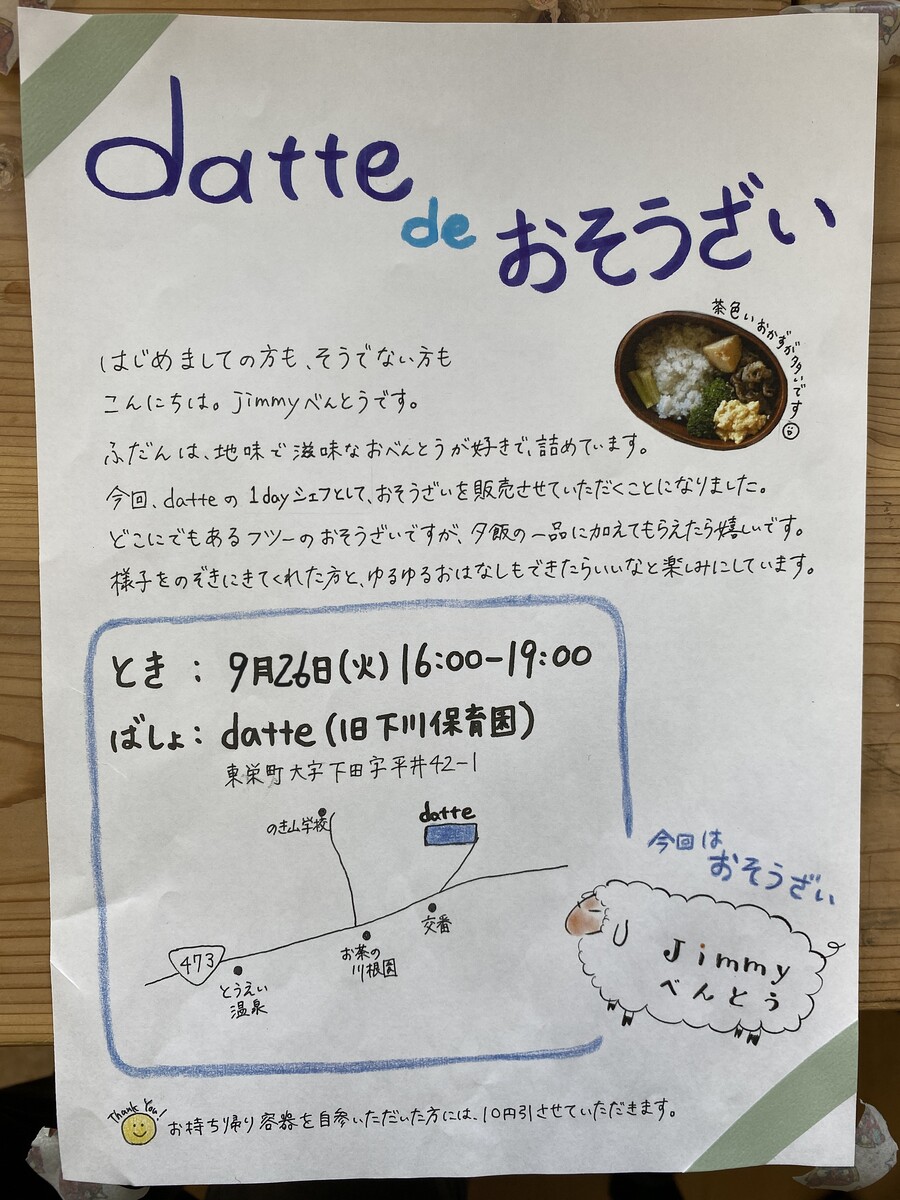 datte
de おそうざい
茶色いおかずが多いです
はじめましての方も、そうでない方も
こんにちは。jimmyべんとうです。
ふだんは、地味で滋味なおべんとうが好きで、詰めています。
今回、datteの1dayシェフとして、おそうざいを販売させていただくことになりました。
どこにでもあるフツーのおそうざいですが、夕飯の一品に加えてもらえたら嬉しいです。
様子をのぞきにきてくれた方と、ゆるゆるおはなしもできたらいいなと楽しみにしています。
とき：9月26日(火)16:00-19:00
ばしょ：datte(旧下川保育園)
東栄町大字下田字平井42-1
のき山学校
datte
交番
お茶の
川根園
473
とうえい
温泉
今回は
おそうざい
Jimmy
べんとう
Thank You!
お持ち帰り容器を自参いただいた方には、10円引させていただきます。